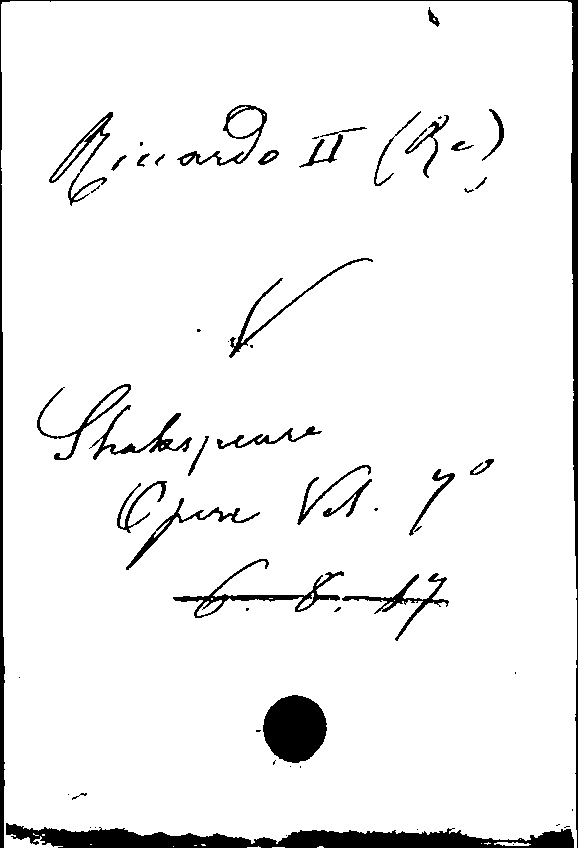 Riccardo II (Re)
V
Shakspeare
Opere Vol. 7º
6. 8. 17